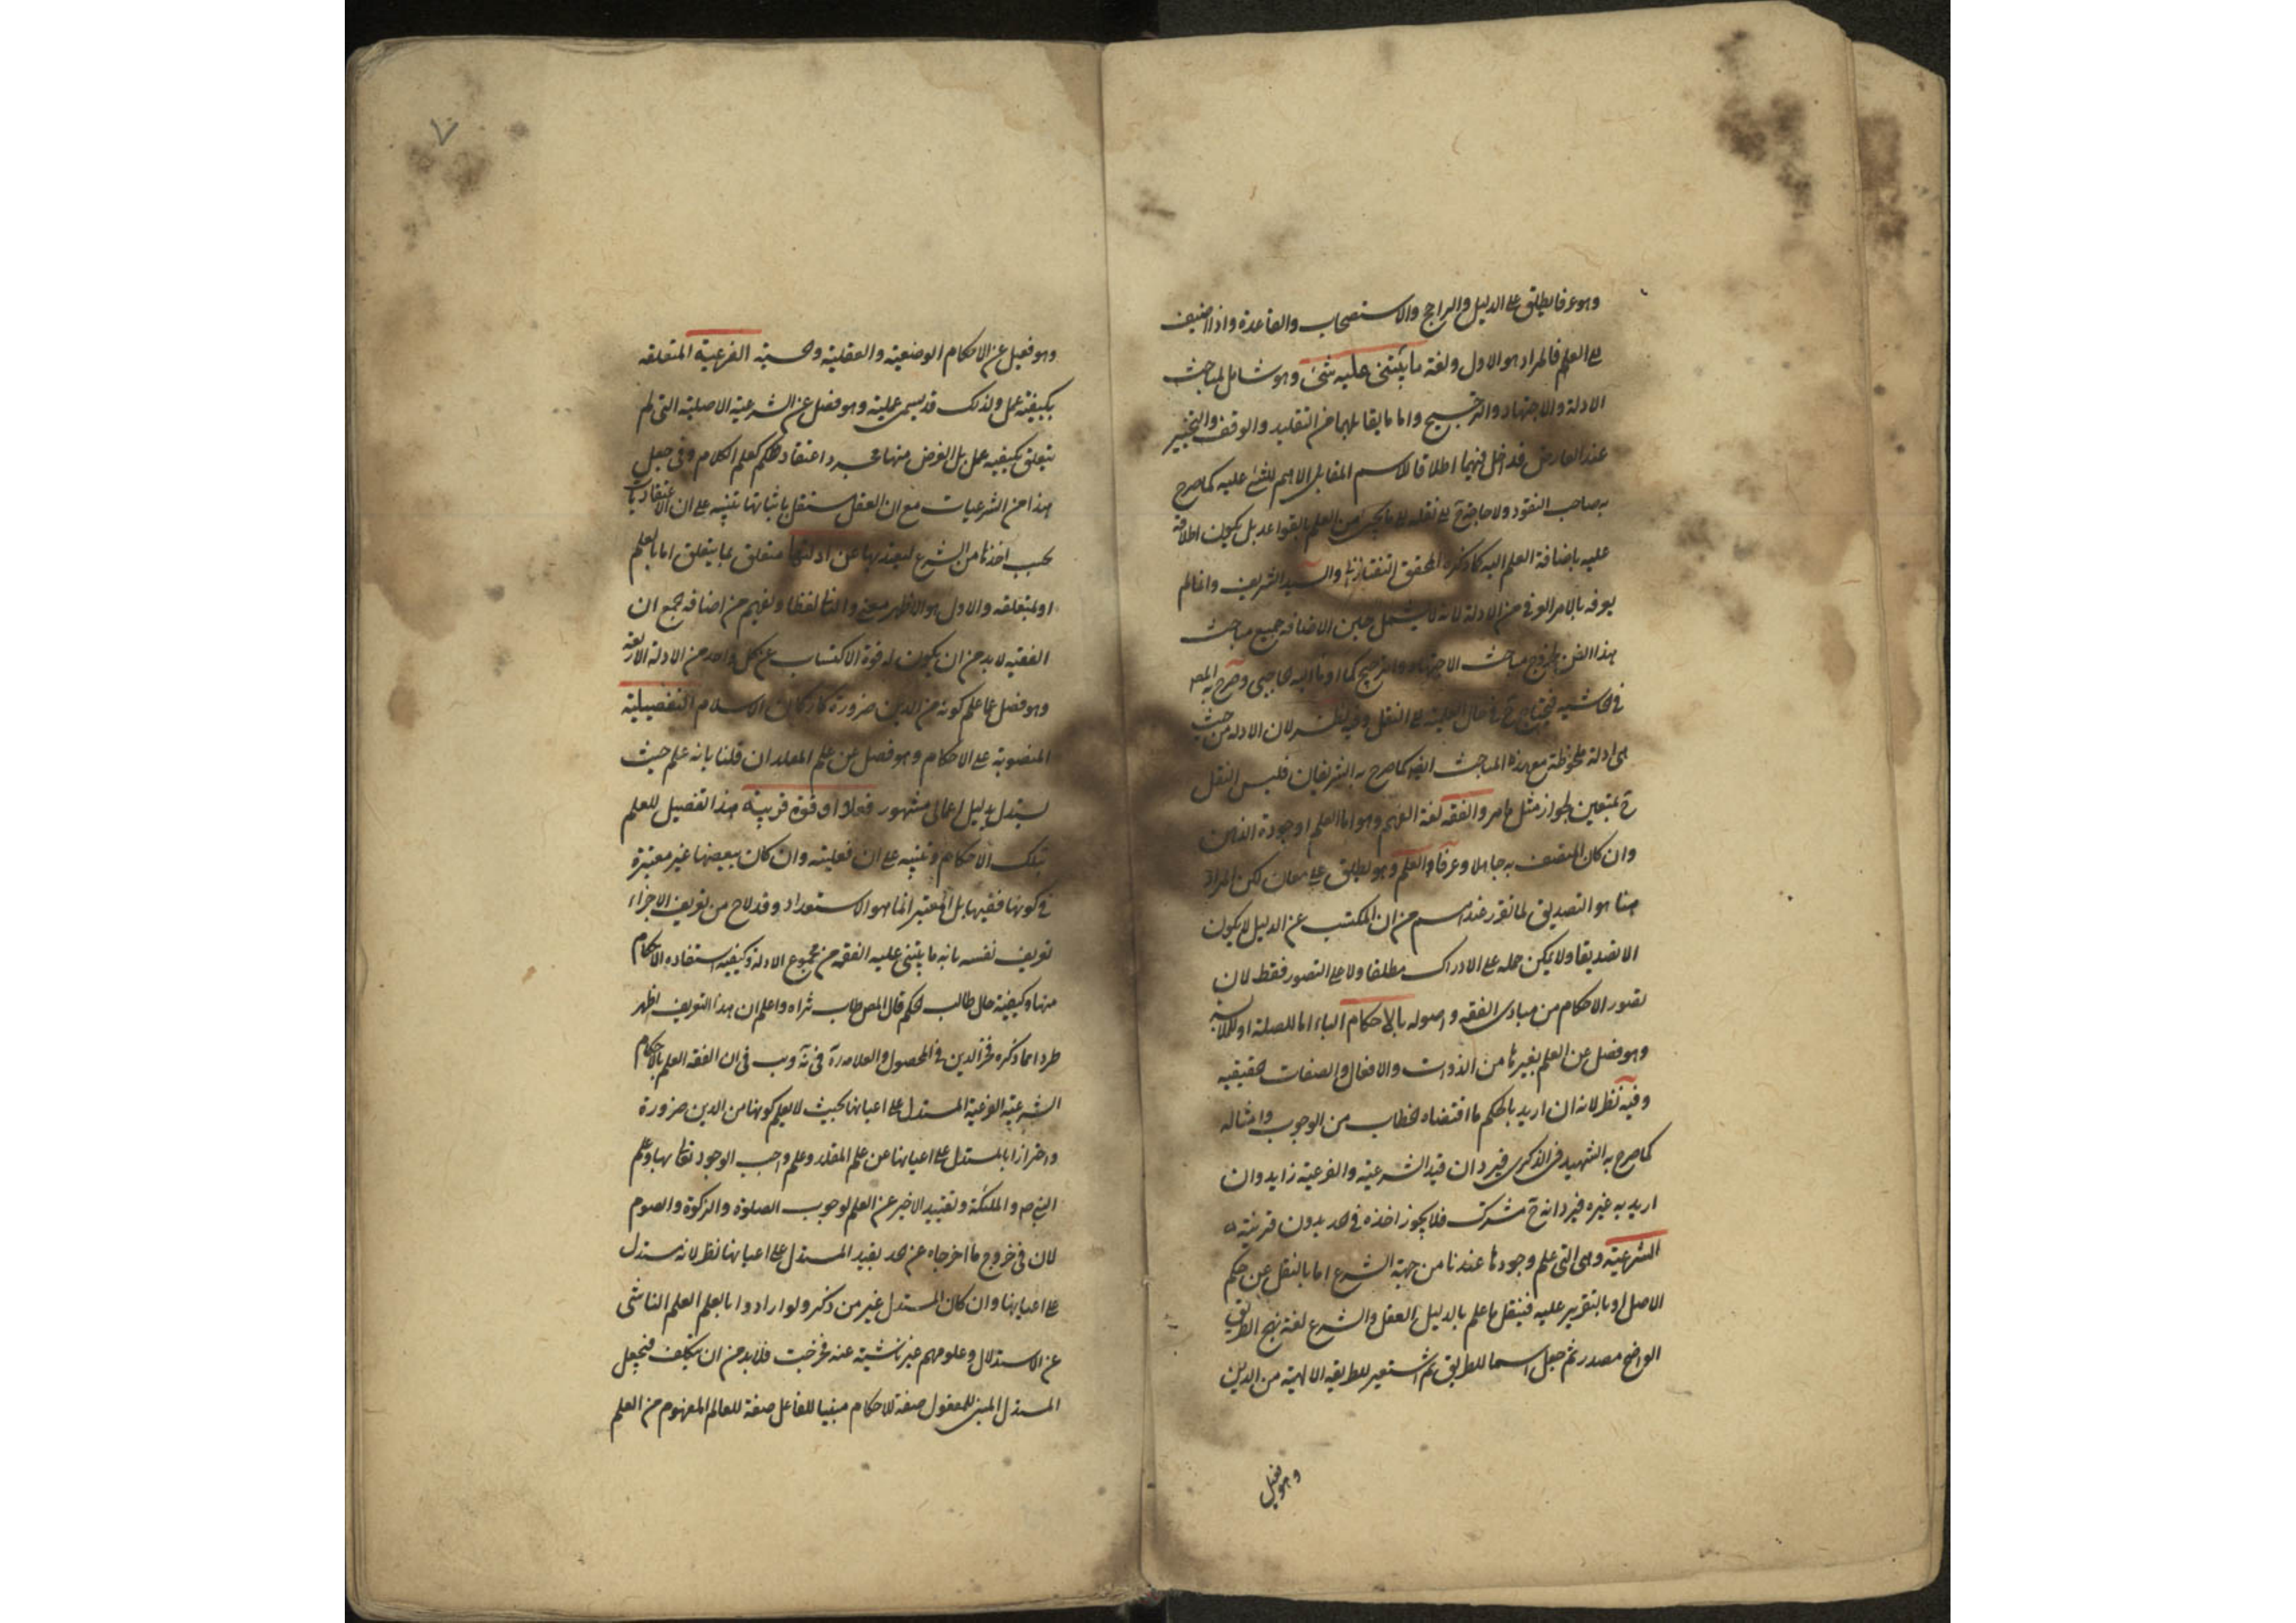 وهو عرفا يطلق على الدليل والراجح والاستصحاب والقاعدة واذا اضيف
الى العلم فالمراد هو الاول ولغة ما يبتنى عليه شئ وهو شامل لمباحث
الادلة والاجتهاد والترجيح واما ما يقابلهما من التقليد والوقف والتخيير
عند التعارض فداخل فيهما اطلاقا للاسم المقابل الاهم للشئ عليه كما صرح
به صاحب النقود ولا حاجة ح الى نقله الى ما يجئ من العلم بالقواعد بل يكون اطلاقه
عليه باضافة العلم اليه كما ذكره المحقق التفتازانى والسيد الشريف وانما لم
يعرفه بالامر العرفى من الادلة لانه لا يشمل حين الاضافة جميع مباحث
هذا الفن لخروج مباحث الاجتهاد والترجيح كما اومأ اليه الحاجبى وصرح به المص
فى الحاشيه فيحتاج ح فى حال العلمية الى النقل وفيه نظر لان الادلة من حيث
هى ادلة ملحوظة مع هذه المباحث ايضا كما صرح به الشريفان فليس النقل
ح بمتعين لجواز مثل ما مر والفقه لغة الفهم وهو اما العلم او جودة الذهن
وان كان المتصف به جاهلا وعرفا والعلم وهو يطلق على معان لكن المراد
هنا هو التصديق لما تقرر عندهم من ان المكتسب عن الدليل لا يكون
الا تصديقا ولا يمكن حمله على الادراك مطلقا ولا على التصور فقط لان
تصور الاحكام من مبادى الفقه واصوله بالاحكام الباء اما للصلة او للملابسة
وهو فصل عن العلم بغيرها من الذوات والافعال والصفات الحقيقيه
وفيه نظر لانه ان اريد بالحكم ما اقتضاه الخطاب من الوجوب وامثاله
كما صرح به الشهيد فى الذكرى فيرد ان قيد الشرعية والفرعية زايد وان
اريد به غيره فيرد انه ح مشترك فلا يجوز اخذه فى الحد بدون قرينة
الشرعية وهى التى علم وجودها عندنا من جهة الشرع اما بالنقل عن حكم
الاصل او بالتقرير عليه فينقل ما علم بالدليل العقل والشرع لغة نهج الطريق
الواضح مصدر ثم جعل اسما للطريق ثم استعير للطريقه الالهية من الدين
وهو فصل
٧
وهو فصل عن الاحكام الوضعية والعقلية والحسية الفرعية المتعلقه
بكيفية عمل ولذلك قد يسمى عملية وهو فصل عن الشرعية الاصلية التى لم
يتعلق بكيفية عمل بل الغرض منها مجرد اعتقاد الحكم كعلم الكلام وفى جعل
هذا من الشرعيات مع ان العقل مستقل باثباتها تنبيه على ان الاعتقاديات
يجب اخذها من الشرع ليعتد بها عن ادلتها متعلق بما يتعلق اما بالعلم
او لمتعلقه والاول هو الاظهر معنى والثانى لفظا ويفهم من اضافة جمع ان
الفقيه لا بد من ان يكون له قوة الاكتساب عن كل واحد من الادلة الاربعة
وهو فصل عما علم كونه من الدين ضرورة كاركان الاسلام التفصيلية
المنصوبة على الاحكام وهو فصل عن علم المقلد ان قلنا بانه علم حيث
يستدل بدليل اجمالى مشهور فعلا او قوة قريبة هذا تفصيل للعلم
بتلك الاحكام وتنبيه على ان فعليته وان كان ببعضها غير معتبرة
فى كونها فقيها بل المعتبر انما هو الاستعداد وقد لاح من تعريف الاجزاء
تعريف نفسه بانه ما يبتنى عليه الفقه من مجموع الادلة وكيفية استفادة الاحكام
منها وكيفية حال طالب الحكم قال المص طاب ثراه واعلم ان هذا التعريف اظهر
طردا مما ذكره فخر الدين فى المحصول والعلامة فى ية ويب فى ان الفقه العلم بالاحكام
الشرعية الفرعية المستدل على اعيانها بحيث لا يعلم كونها من الدين ضرورة
واحترازا بالمستدل على اعيانها عن علم المقلد وعلم واجب الوجود تعالى بها وعلم
النبى ص والملئكة وتقييد الاخير عن العلم لوجوب الصلوة والزكوة والصوم
لان فى خروج ما اخرجاه عن الحد بقيد المستدل على اعيانها نظر لانه مستدل
على اعيانها وان كان المستدل غير من ذكر ولو ارادوا بالعلم العلم الناشى
عن الاستدلال وعلومهم غير ناشية عنه فخرجت فلا بد من ان يتكلف فيجعل
المستدل المبنى للمفعول صفة للاحكام مبنيا للفاعل صفة للعالم المفهوم من العلم